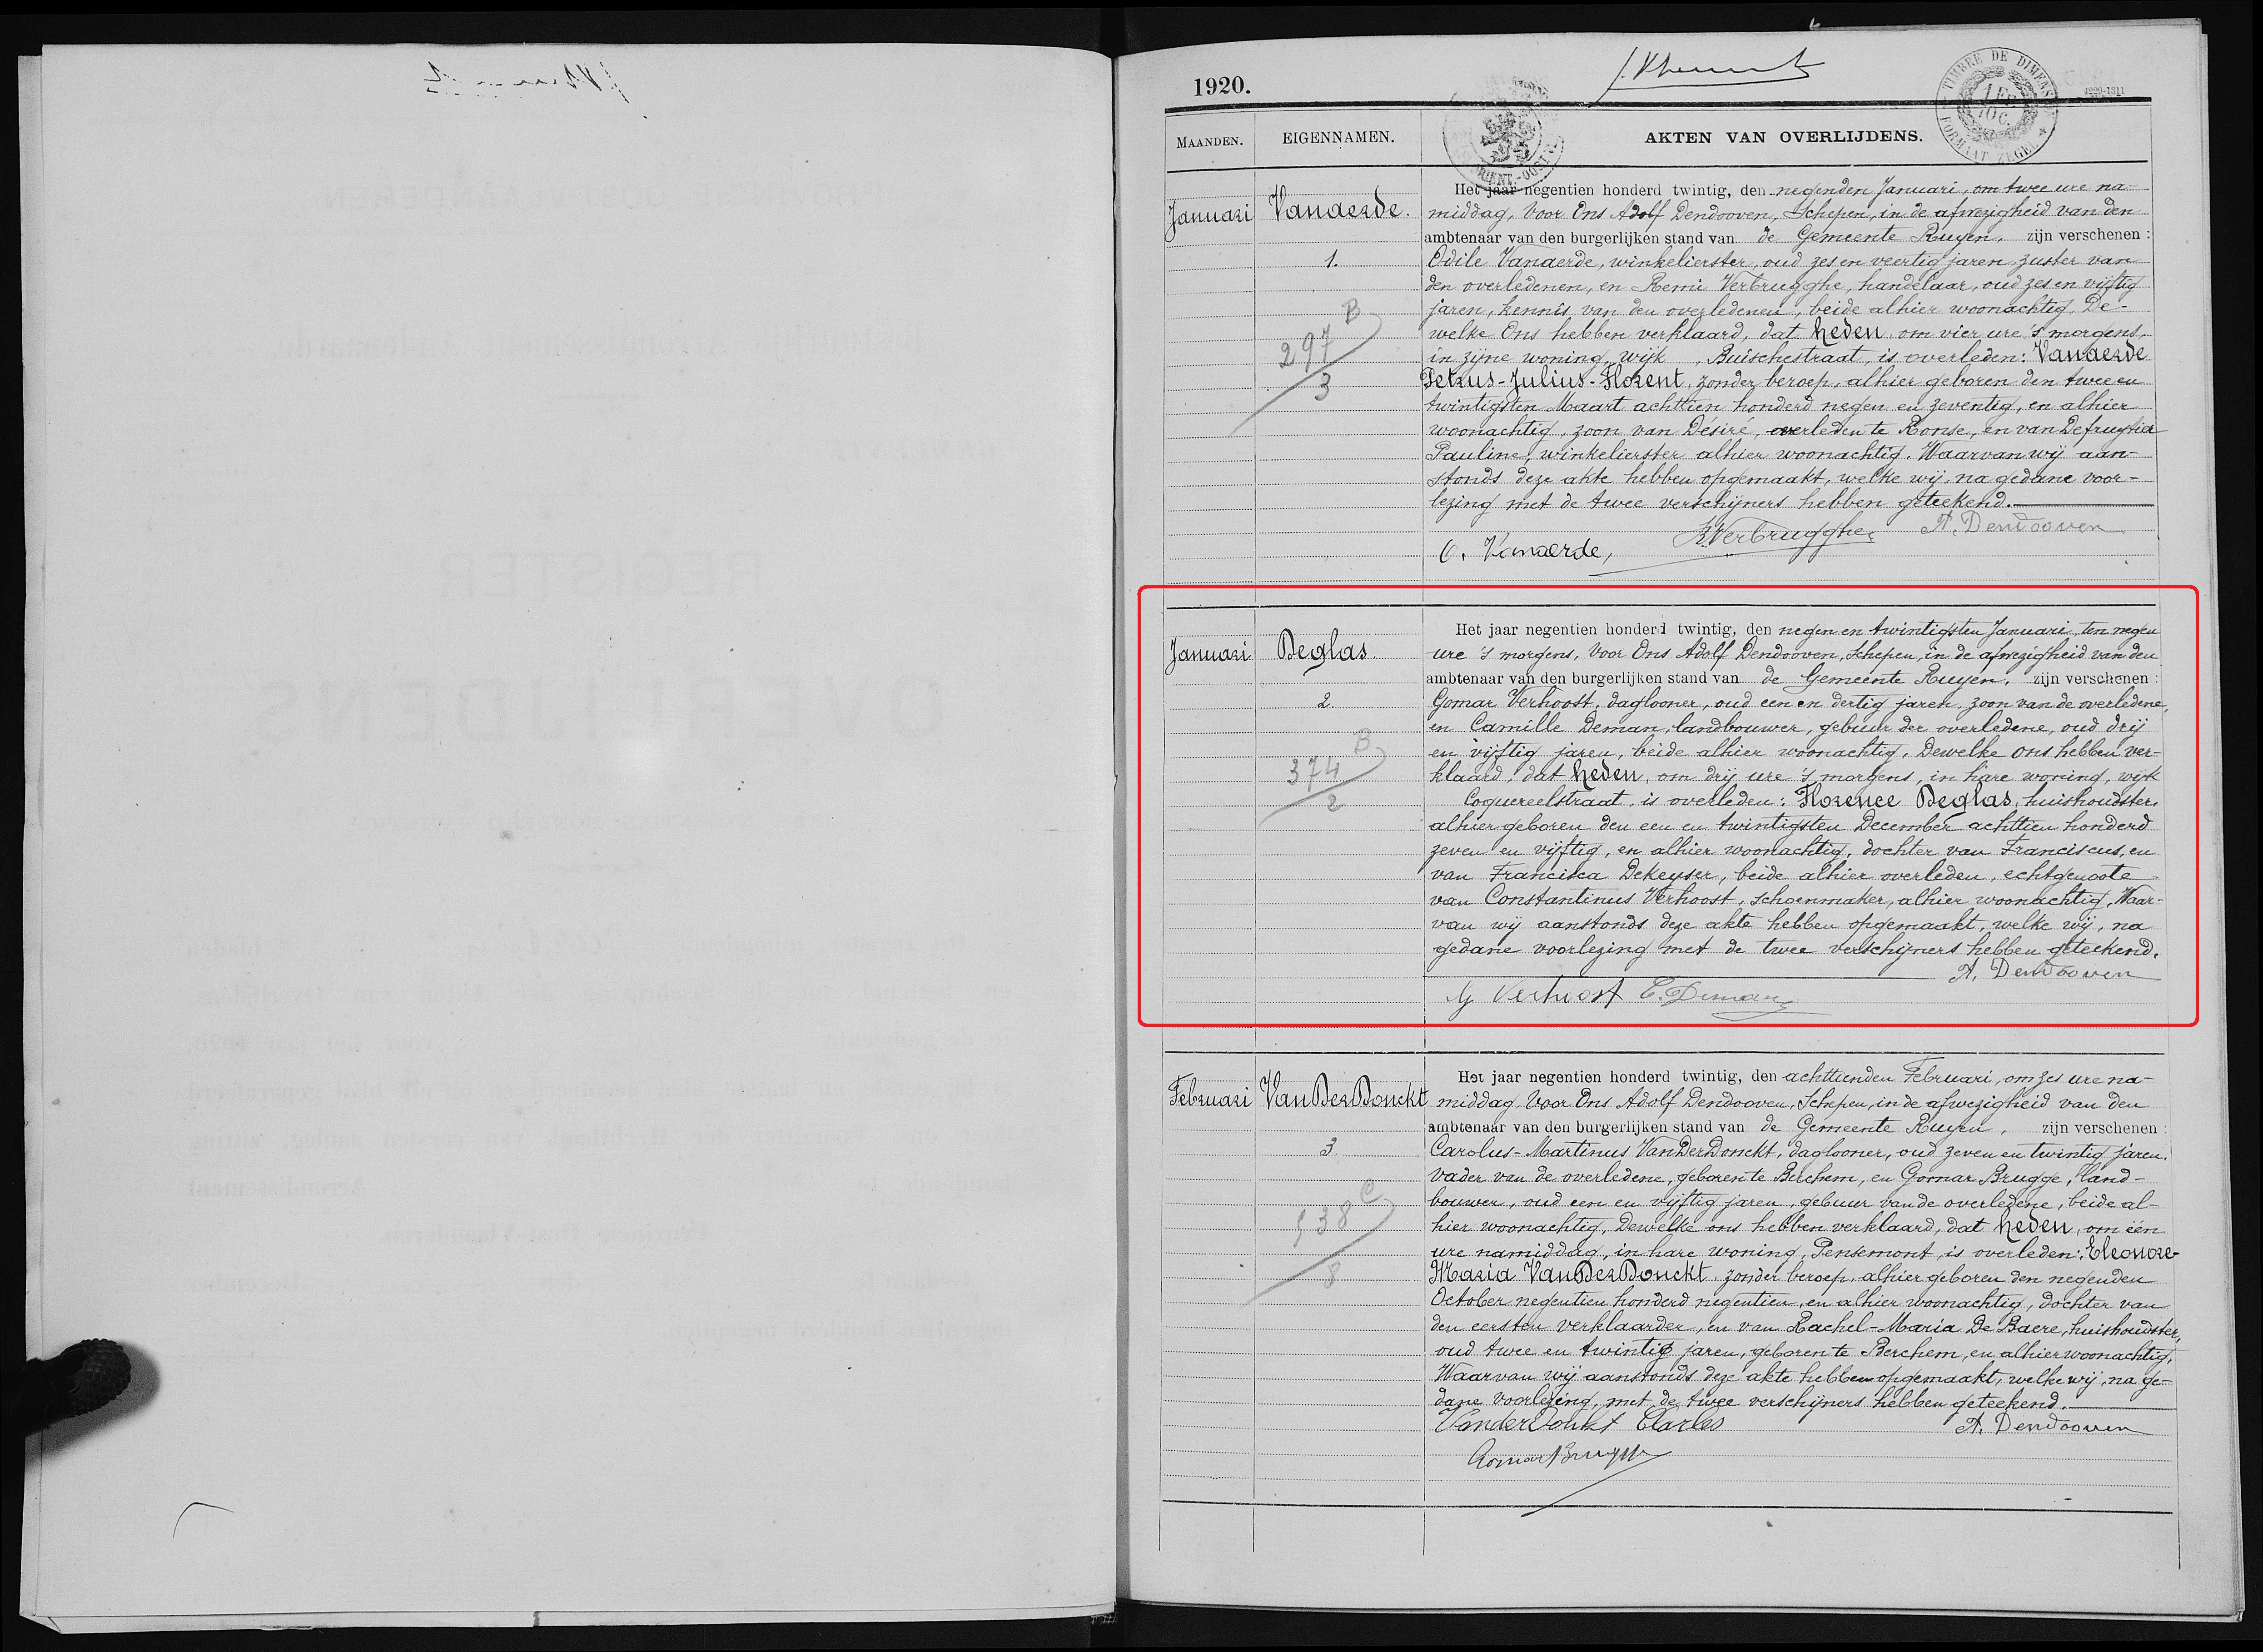 1920.
TIMBRE DE DIMENSION
FORMAAT ZEGEL
MAANDEN.
EIGENNAMEN.
AKTEN VAN OVERLIJDENS.
Januari
Vanaerde.
1.
B
297
3
Het jaar negentien honderd twintig, den negenden Januari, om twee ure na-
middag, Voor Ons Adolf Dendooven, Schepen, in de afwezigheid van den
ambtenaar van den burgerlijken stand van de Gemeente Ruyen, zijn verschenen :
Odile Vanaerde, winkelierster, oud zes en veertig jaren, zuster van
den overledenen, en Remi Verbrugghe, handelaar, oud zes en vijftig
jaren, kennis van den overledenen, beide alhier woonachtig. De-
welke Ons hebben verklaard, dat heden, om vier ure 's morgens,
in zijne woning, wijk , Buischestraat, is overleden: Vanaerde
Petrus-Julius-Florent, zonder beroep, alhier geboren den twee en
twintigsten Maart achttien honderd negen en zeventig, en alhier
woonachtig, zoon van Désiré, overleden te Ronse, en van Defruytier
Pauline, winkelierster alhier woonachtig. Waarvan wij aan-
stonds deze akte hebben opgemaakt, welke wij, na gedane voor-
lezing met de twee verschijners hebben geteekend.
O. Vanaerde,
R. Verbrugghe
A. Dendooven
Januari
Deglas.
2.
B
374
2
Het jaar negentien honderd twintig, den negen en twintigsten Januari, ten negen
ure 's morgens, Voor Ons Adolf Dendooven, Schepen, in de afwezigheid van den
ambtenaar van den burgerlijken stand van de Gemeente Ruyen, zijn verschenen :
Gomar Verhoost, daglooner, oud een en dertig jaren, zoon van de overledene,
en Camille Deman, landbouwer, gebuur der overledene, oud drij
en vijftig jaren, beide alhier woonachtig. Dewelke ons hebben ver-
klaard, dat heden, om drij ure 's morgens, in hare woning, wijk
Coquereelstraat, is overleden: Florence Deglas, huishoudster,
alhier geboren den een en twintigsten December achttien honderd
zeven en vijftig, en alhier woonachtig, dochter van Franciscus, en
van Francisca Dekeyser, beide alhier overleden, echtgenoote
van Constantinus Verhoost, schoenmaker, alhier woonachtig, Waar-
van wij aanstonds deze akte hebben opgemaakt, welke wij, na
gedane voorlezing met de twee verschijners hebben geteekend.
A. Dendooven
G Verhoost C. Deman
Februari
VanDerDonckt
3.
C
538
8
Het jaar negentien honderd twintig, den achttienden Februari, om zes ure na-
middag, Voor Ons Adolf Dendooven, Schepen, in de afwezigheid van den
ambtenaar van den burgerlijken stand van de Gemeente Ruyen, zijn verschenen :
Carolus-Martinus VanDerDonckt, daglooner, oud zeven en twintig jaren,
vader van de overledene, geboren te Berchem, en Gomar Brugge, land-
bouwer, oud een en vijftig jaren, gebuur van de overledene, beide al-
hier woonachtig, Dewelke ons hebben verklaard, dat heden, om één
ure namiddag, in hare woning, Pensemont, is overleden: Eleonore-
Maria VanDerDonckt, zonder beroep, alhier geboren den negenden
October negentien honderd negentien, en alhier woonachtig, dochter van
den eersten verklaarder, en van Rachel-Maria De Baere, huishoudster,
oud twee en twintig jaren, geboren te Berchem, en alhier woonachtig,
Waarvan wij aanstonds deze akte hebben opgemaakt, welke wij, na ge-
dane voorlezing, met de twee verschijners hebben geteekend.
VanderDonkt Charles
A. Dendooven
Gomar Brugge